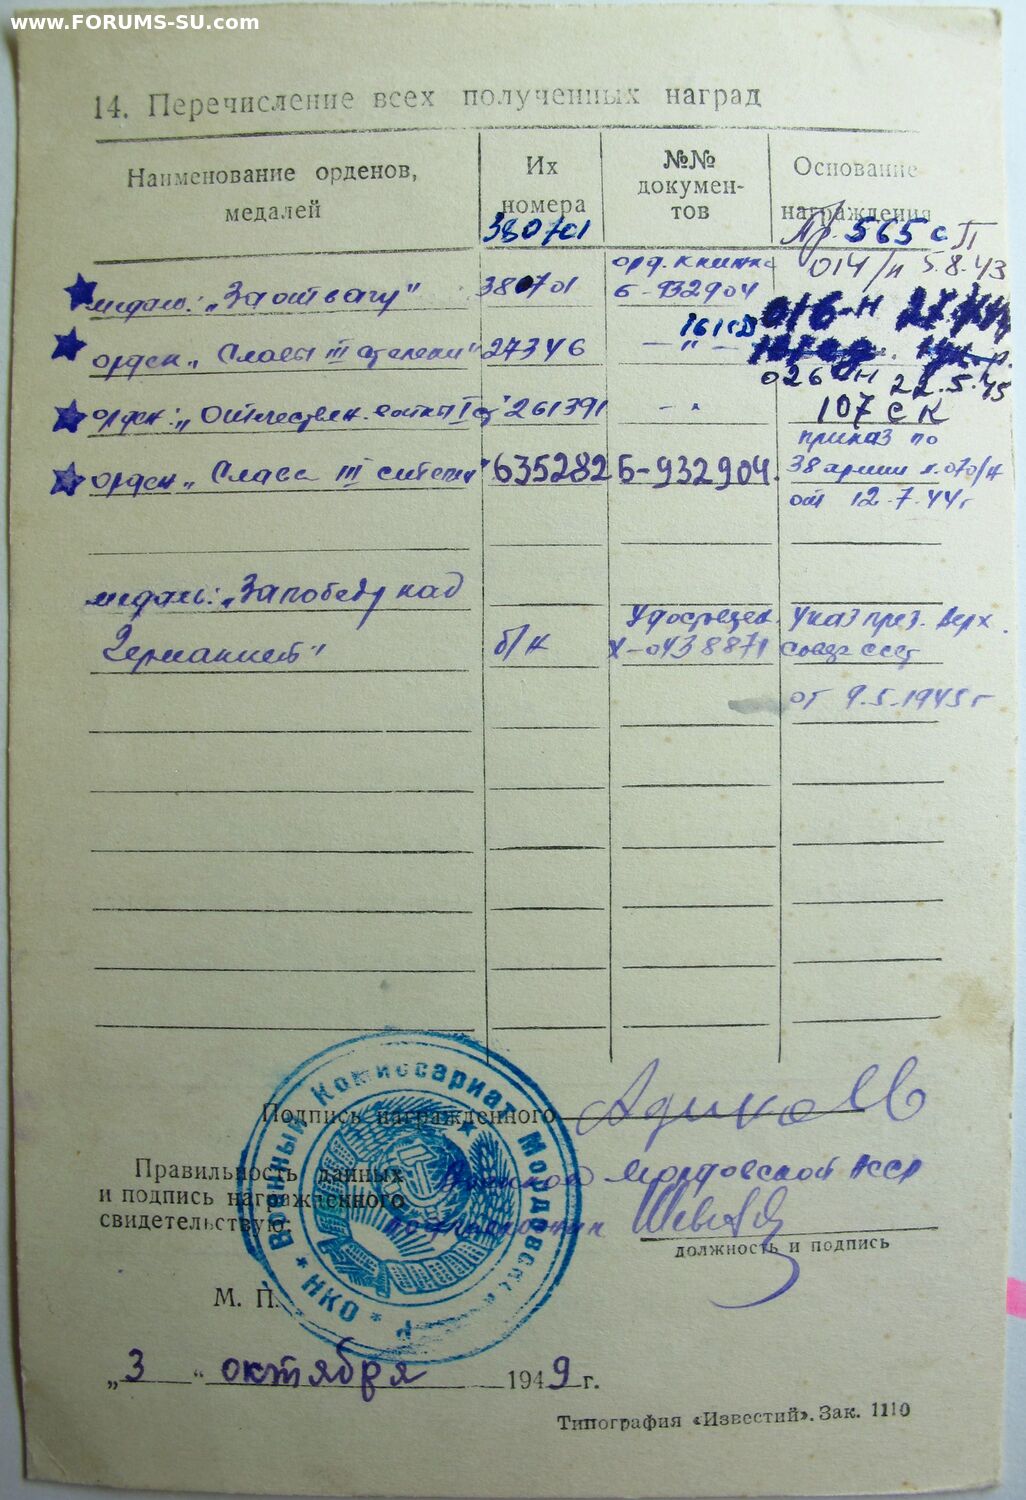 www.FORUMS-SU.com
14. Перечисление всех полученных наград
Наименование орденов, медалей
Их номера
№№ докумен-тов
Основание награждения
380701
Пр 565 с П
медаль: „За отвагу"
380701
орд. книжка
Б-932904
014/н 5.8.43
орден „Славы III степени"
27346
161 СД
— " —
016-н
орден: „Отечествен. войны I ст"
261391
— " —
026-н 22.5.45
107 СК
орден „Слава III степени"
635282
Б-932904.
приказ по
38 армии н.070/н
от 12.7.44г
медаль: „За победу над
Германией"
б/н
Удостверен.
Х-0438871
Указ през. Верх.
Совета СССР
от 9.5.1945 г
Подпись награжденного
Правильность данных
и подпись награжденного
свидетельствую:
Мордовской АССР
должность и подпись
Военный Комиссариат Мордовской
* НКО *
М. П.
„3" октября 1949 г.
Типография «Известий». Зак. 1110